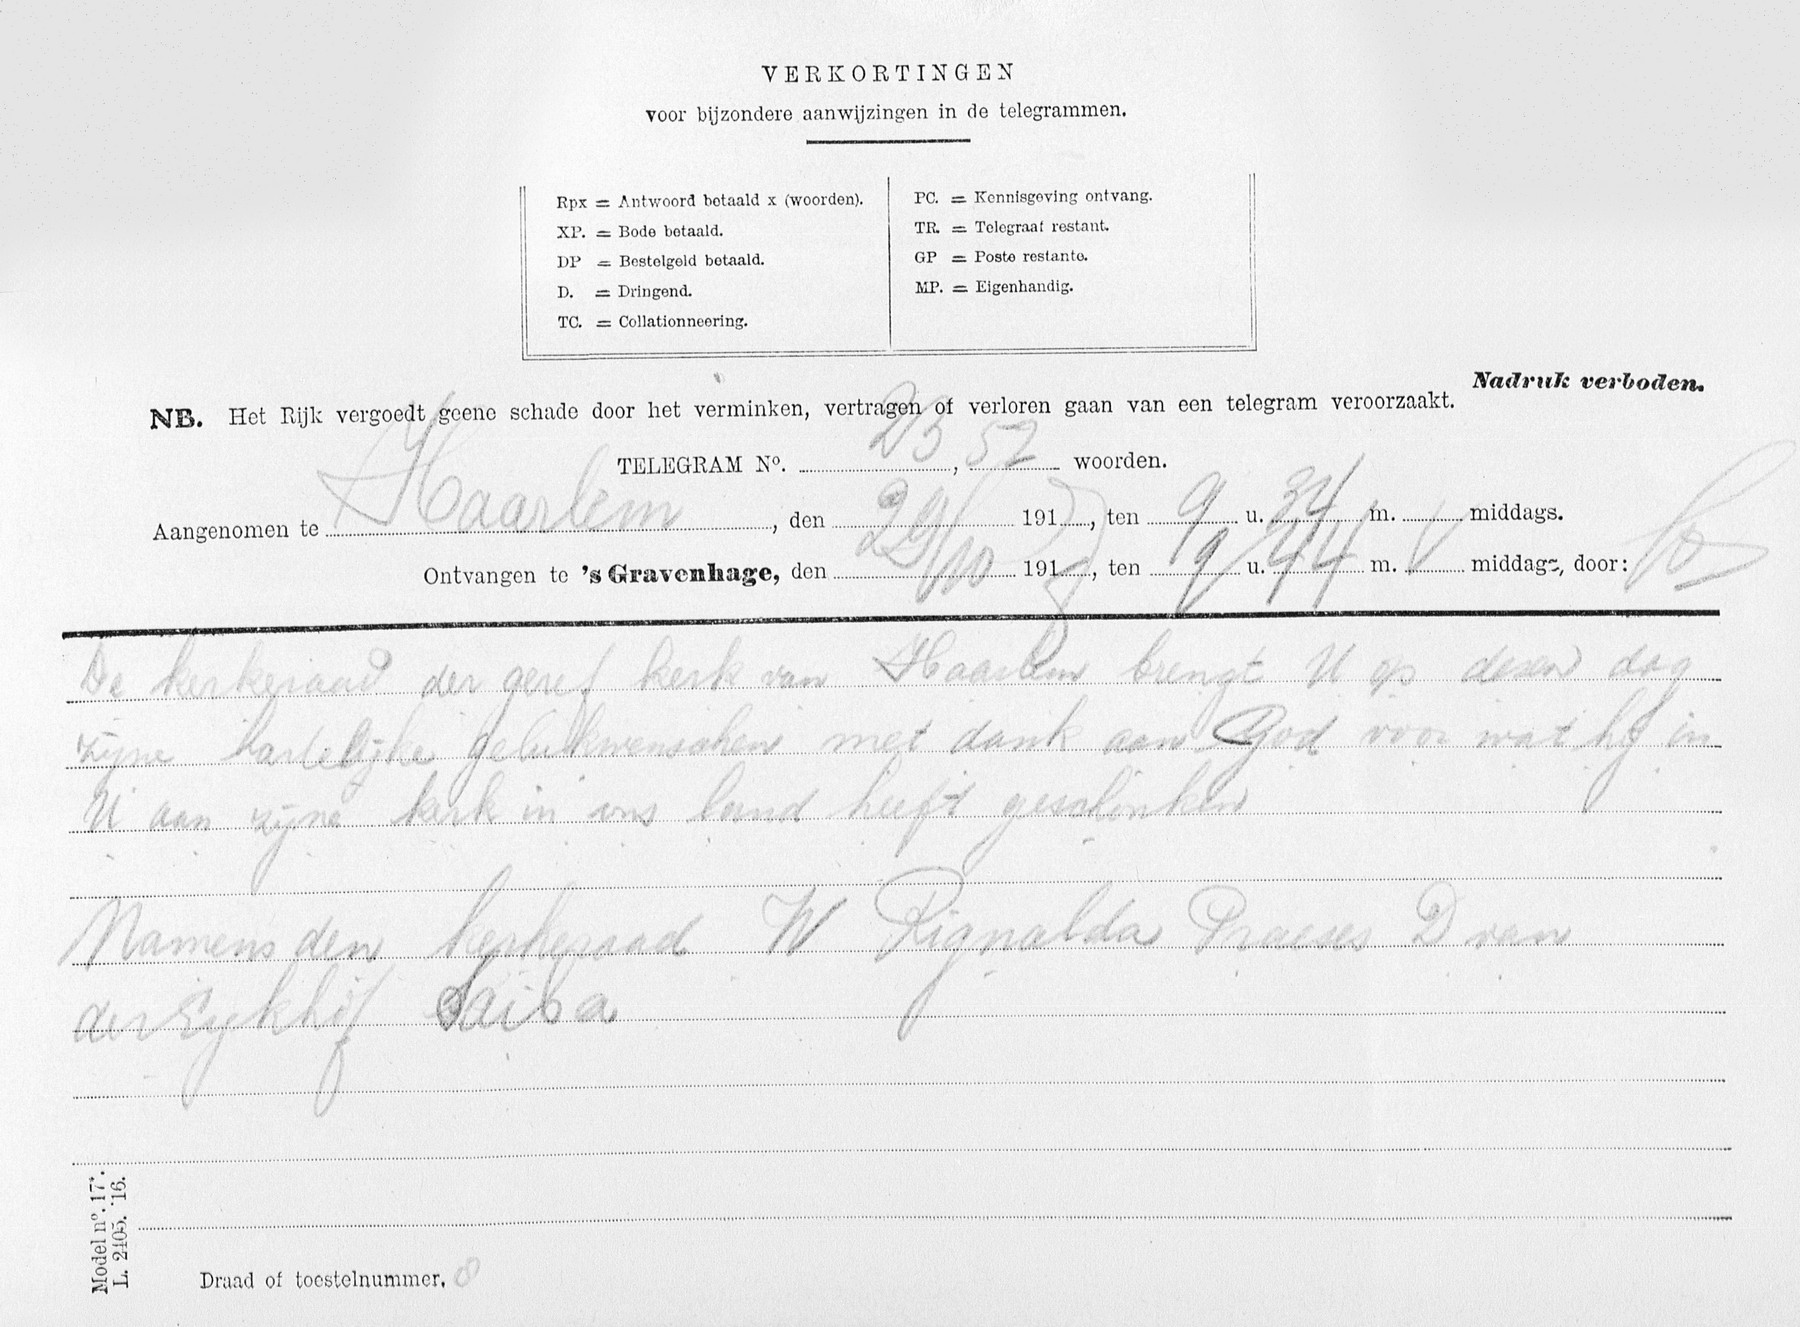 VERKORTINGEN
voor bijzondere aanwijzingen in de telegrammen.
Rpx = Antwoord betaald x (woorden).
XP. = Bode betaald.
DP = Bestelgeld betaald.
D. = Dringend.
TC. = Collationneering.
PC. = Kennisgeving ontvang.
TR. = Telegraaf restant.
GP = Poste restante.
MP. = Eigenhandig.
Nadruk verboden.
NB. Het Rijk vergoedt geene schade door het verminken, vertragen of verloren gaan van een telegram veroorzaakt.
TELEGRAM No. 23, 52 woorden.
Aangenomen te Haarlem, den 29/10 191, ten 9 u. 34 m. V middags.
Ontvangen te 's Gravenhage, den 191, ten 9 u. 44 m. V middags, door:
De kerkeraad der geref kerk van Haarlem brengt U op dezen dag
zijne hartelijke gelukwenschen met dank aan God voor wat hij in
U aan zijne kerk in ons land heeft geschonken
Namens den kerkeraad W Rignalda Praeses D van
der Eykhof Scriba
Model no. 17*.
L. 2105. '16.
Draad of toestelnummer. 8